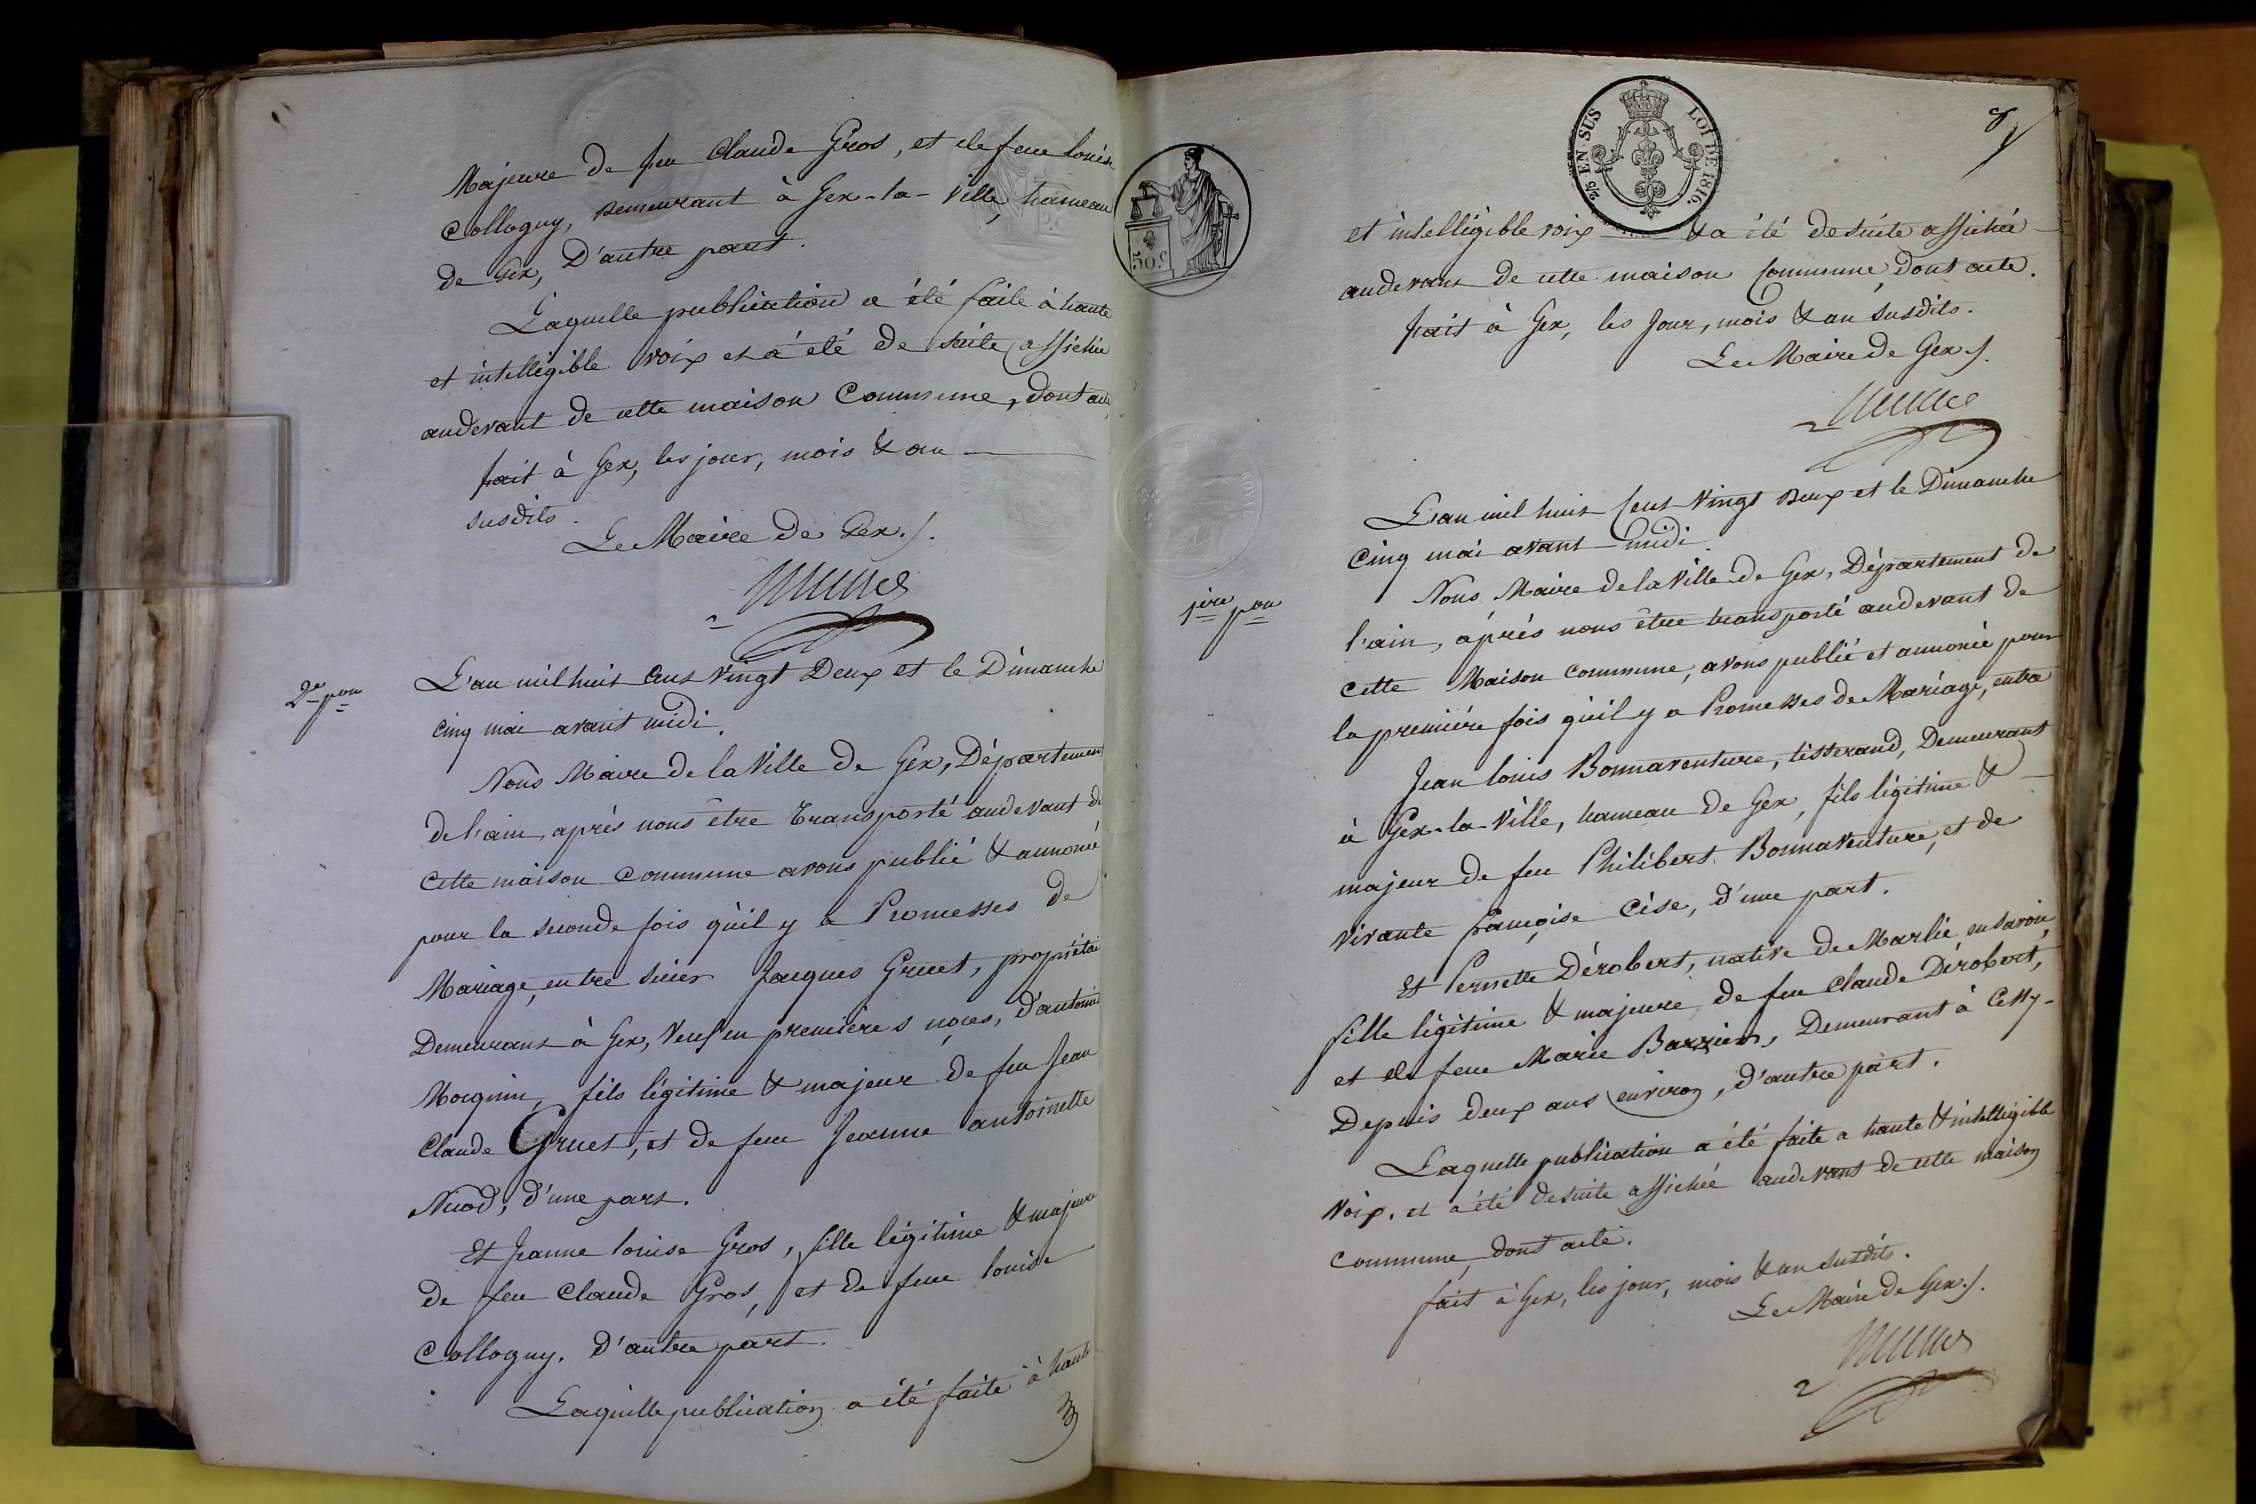 Majeure de feu Claude Gros, et de feue louise
Collogny, Demeurant à Gex-la-Ville, hameau
de Gex, D'autre part.
Laquelle publication a été faite à haute
et intelligible voix et à été de suite affichée
audevant de cette maison Commune, dont acte,
fait à Gex, les jour, mois & an
susdits.
Le Maire de Gex ./.
2e pon
L'an mil huit cent vingt Deux et le Dimanche
cinq mai avant midi.
Nous Maire de la Ville de Gex, Département
de l'ain, après nous être transporté audevant de
cette maison commune avons publié & annoncé
pour la seconde fois qu'il y a Promesses de
Mariage, entre sieur Jacques Gruet, propriétaire
Demeurant à Gex, veuf en premières noces, d'antoine
fils légitime & majeur de feu Jean
Claude Gruet, et de feue Jeanne antoinette
Nicod, d'une part.
Et Jeanne louise Gros, fille légitime & majeure
de feu Claude Gros, et de feue louise
Collogny. D'autre part.
Laquelle publication a été faite à haute
2/5 EN SUS
LOI DE 1816.
50 c
8
et intelligible voix & a été de suite affichée
audevant de cette maison Commune, dont acte.
fait à Gex, les Jour, mois & an susdits.
Le Maire de Gex ./.
1ère pon
L'an mil huit Cent Vingt Deux et le Dimanche
Cinq mai avant midi.
Nous Maire de la Ville de Gex, Département de
l'ain, après nous être transporté audevant de
cette Maison commune, avons publié et annoncé pour
la première fois qu'il y a Promesses de Mariage, entre
Jean louis Bonnaventure, tisserand, Demeurant
à Gex-la-Ville, hameau de Gex, fils légitime &
majeur de feu Philibert Bonnaventure, et de
vivante françoise Cése, d'une part.
Et Pernette Dérobert, native de Marlie en Savoie,
fille légitime & majeure, de feu Claude Dérobert,
et de feue Marie Demeurant à Cessy
Depuis deux ans environ, d'autre part.
Laquelle publication a été faite a haute & intelligible
voix, et a été de suite affichée audevant de cette maison
commune dont acte.
fait à Gex, les jour, mois & an susdits.
Le Maire de Gex ./.